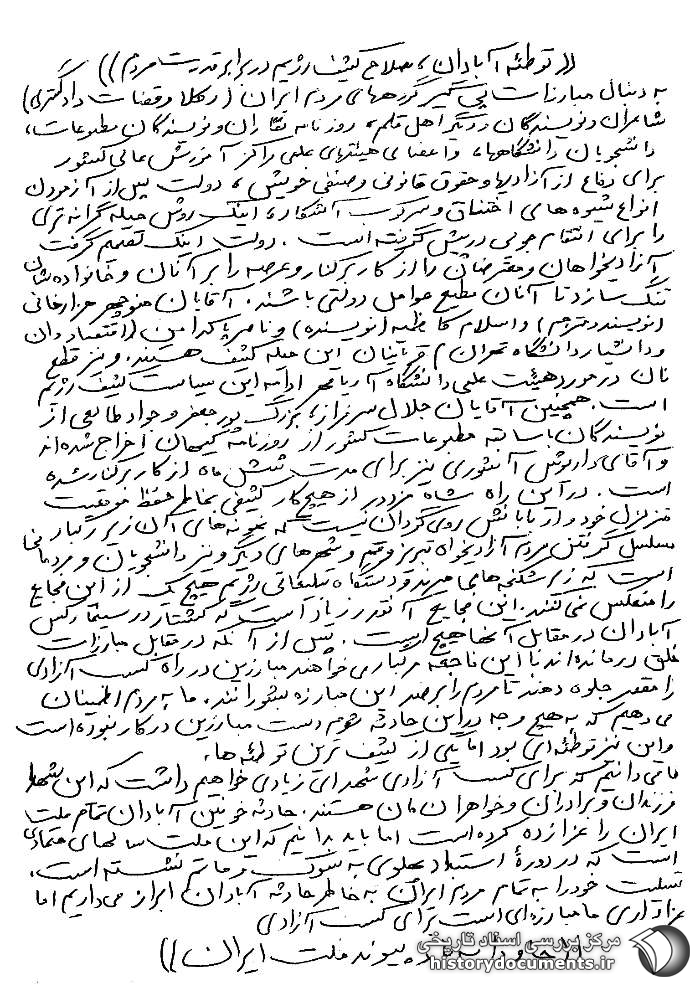 ((توطئه آبادان، سلاح کثیف رژیم در برابر قدرت مردم))
به دنبال مبارزات پی گیر گروههای مردم ایران (وکلا و قضات دادگستری)
شاعران و نویسندگان و دیگر اهل قلم، روزنامه نگاران و نویسندگان مطبوعات،
دانشجویان دانشگاهها، و اعضای هیئتهای علمی مراکز آموزش عالی کشور
برای دفاع از آزادیها و حقوق قانونی و صنفی خویش، دولت پس از آزمودن
انواع شیوه های اختناق و سرکوب آشکار، اینک روش حیله گرانه تری
را برای انتقام جویی در پیش گرفته است. دولت اینک تصمیم گرفت
آزادیخواهان و معترضان را از کار برکنار و عرصه را بر آنان و خانواده شان
تنگ سازد تا آنان مطیع عوامل دولتی باشند. آقایان منوچهر هزارخانی
(نویسنده و مترجم) و اسلام کاظمیه (نویسنده) و ناصر پاکدامن (اقتصاددان
و دانشیار دانشگاه تهران) قربانیان این حیله کثیف هستند. و نیز قطع
نان در مورد هیئت علمی دانشگاه آریامهر ادامه این سیاست کثیف رژیم
است. همچنین آقایان جلال سرفراز، بزرگ پورجعفر و جواد طالعی از
نویسندگان با سابقه مطبوعات کشور از روزنامه کیهان اخراج شده اند
و آقای داریوش آشوری نیز برای مدت شش ماه از کار برکنار شده
است. در این راه شاه مزدور از هیچ کار کثیفی بخاطر حفظ موقعیت
متزلزل خود و اربابانش روی گردان نیست که نمونه های آن زیر رگبار
مسلسل گرفتن مردم آزادیخواه تبریز و قم و شهرهای دیگر و نیز دانشجویان و مردمانی
است که زیر شکنجه ها می میرند و دستگاه تبلیغاتی رژیم هیچ یک از این فجایع
را منعکس نمی کنند. این فجایع آنقدر زیاد است که کشتار در سینما رکس
آبادان در مقابل آنها هیچ است. پس از آنکه در مقابل مبارزات
خلق درمانده اند با این فاجعه مرگباری خواهند مبارزین در راه کسب آزادی
را مقصر جلوه دهند تا مردم را بر ضد این مبارزه بشورانند. ما به مردم اطمینان
می دهیم که به هیچ وجه در این حادثه شوم دست مبارزین در کار نبوده است
و این نیز توطئه ای بود اما یکی از کثیف ترین توطئه ها.
ما می دانیم که برای کسب آزادی شهدای زیادی خواهیم داشت که این شهدا
فرزندان و برادران و خواهران مان هستند. حادثه خونین آبادان تمام ملت
ایران را عزازده کرده است اما باید بدانیم که این ملت سالهای متمادی
است که در دورهٔ استبداد پهلوی به سوک و ماتم نشسته است.
تسلیت خود را به تمام مردم ایران به خاطر حادثه آبادان ابراز می داریم اما
عزاداری ما مبارزه ای است برای کسب آزادی
پیوند ملت ایران))
مرکز بررسی اسناد تاریخی
historydocuments.ir